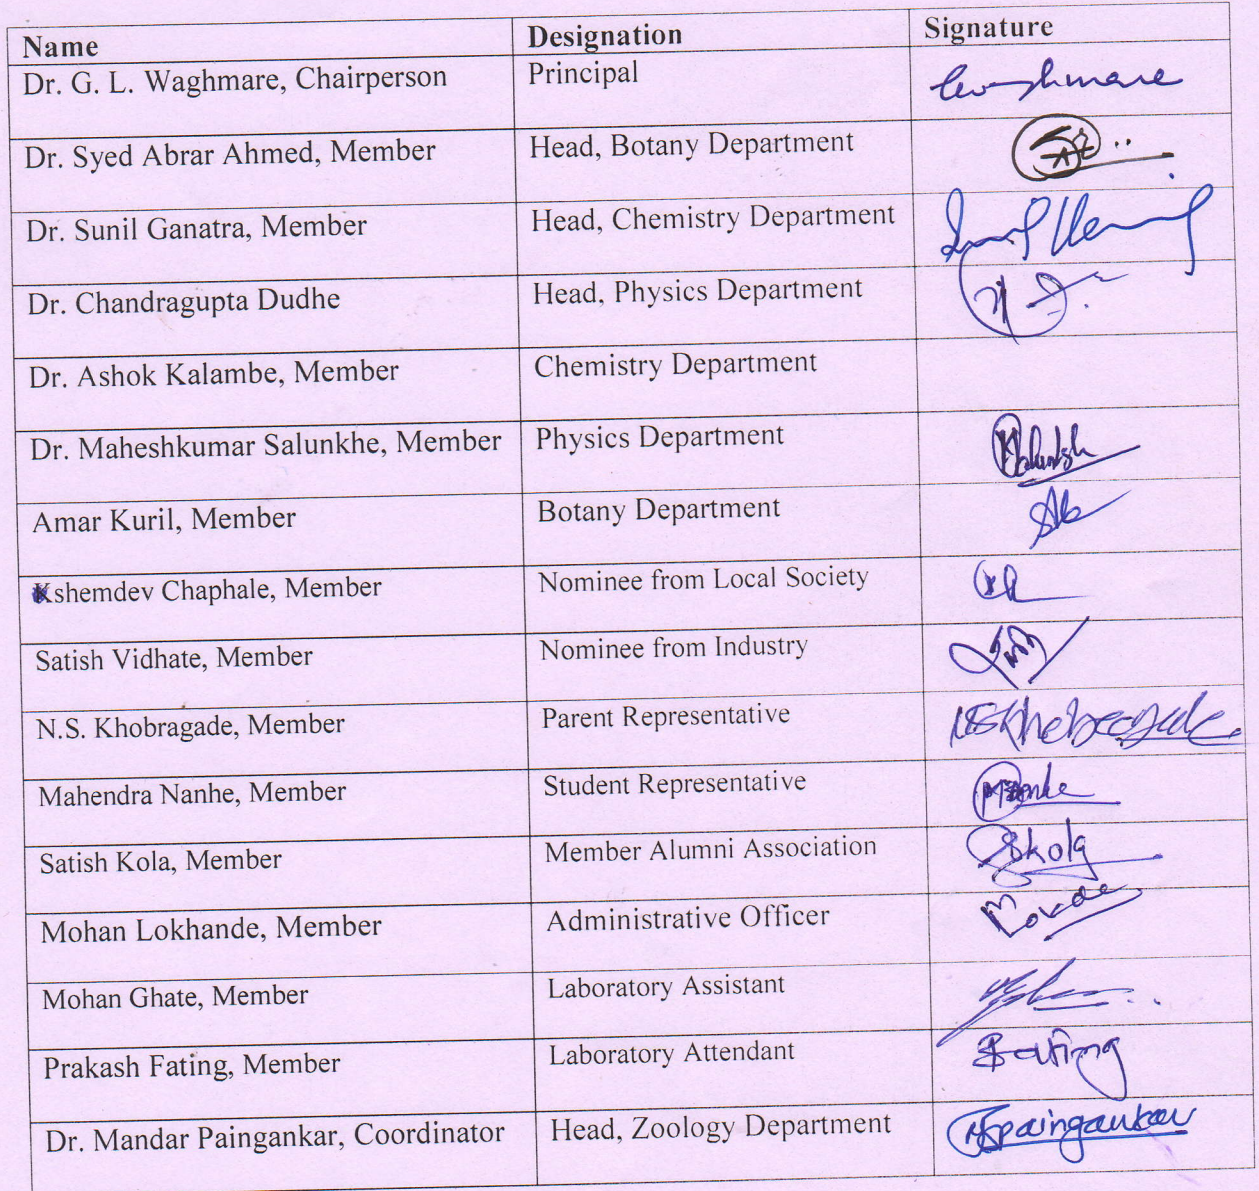 Name Designation Signature
Dr. G. L. Waghmare, Chairperson Principal
Dr. Syed Abrar Ahmed, Member Head, Botany Department
Dr. Sunil Ganatra, Member Head, Chemistry Department
Dr. Chandragupta Dudhe Head, Physics Department
Dr. Ashok Kalambe, Member Chemistry Department
Dr. Maheshkumar Salunkhe, Member Physics Department
Amar Kuril, Member Botany Department
Kshemdev Chaphale, Member Nominee from Local Society
Satish Vidhate, Member Nominee from Industry
N.S. Khobragade, Member Parent Representative NSKhobragade
Mahendra Nanhe, Member Student Representative
Satish Kola, Member Member Alumni Association Skola
Mohan Lokhande, Member Administrative Officer
Mohan Ghate, Member Laboratory Assistant
Prakash Fating, Member Laboratory Attendant
Dr. Mandar Paingankar, Coordinator Head, Zoology Department Paingankar